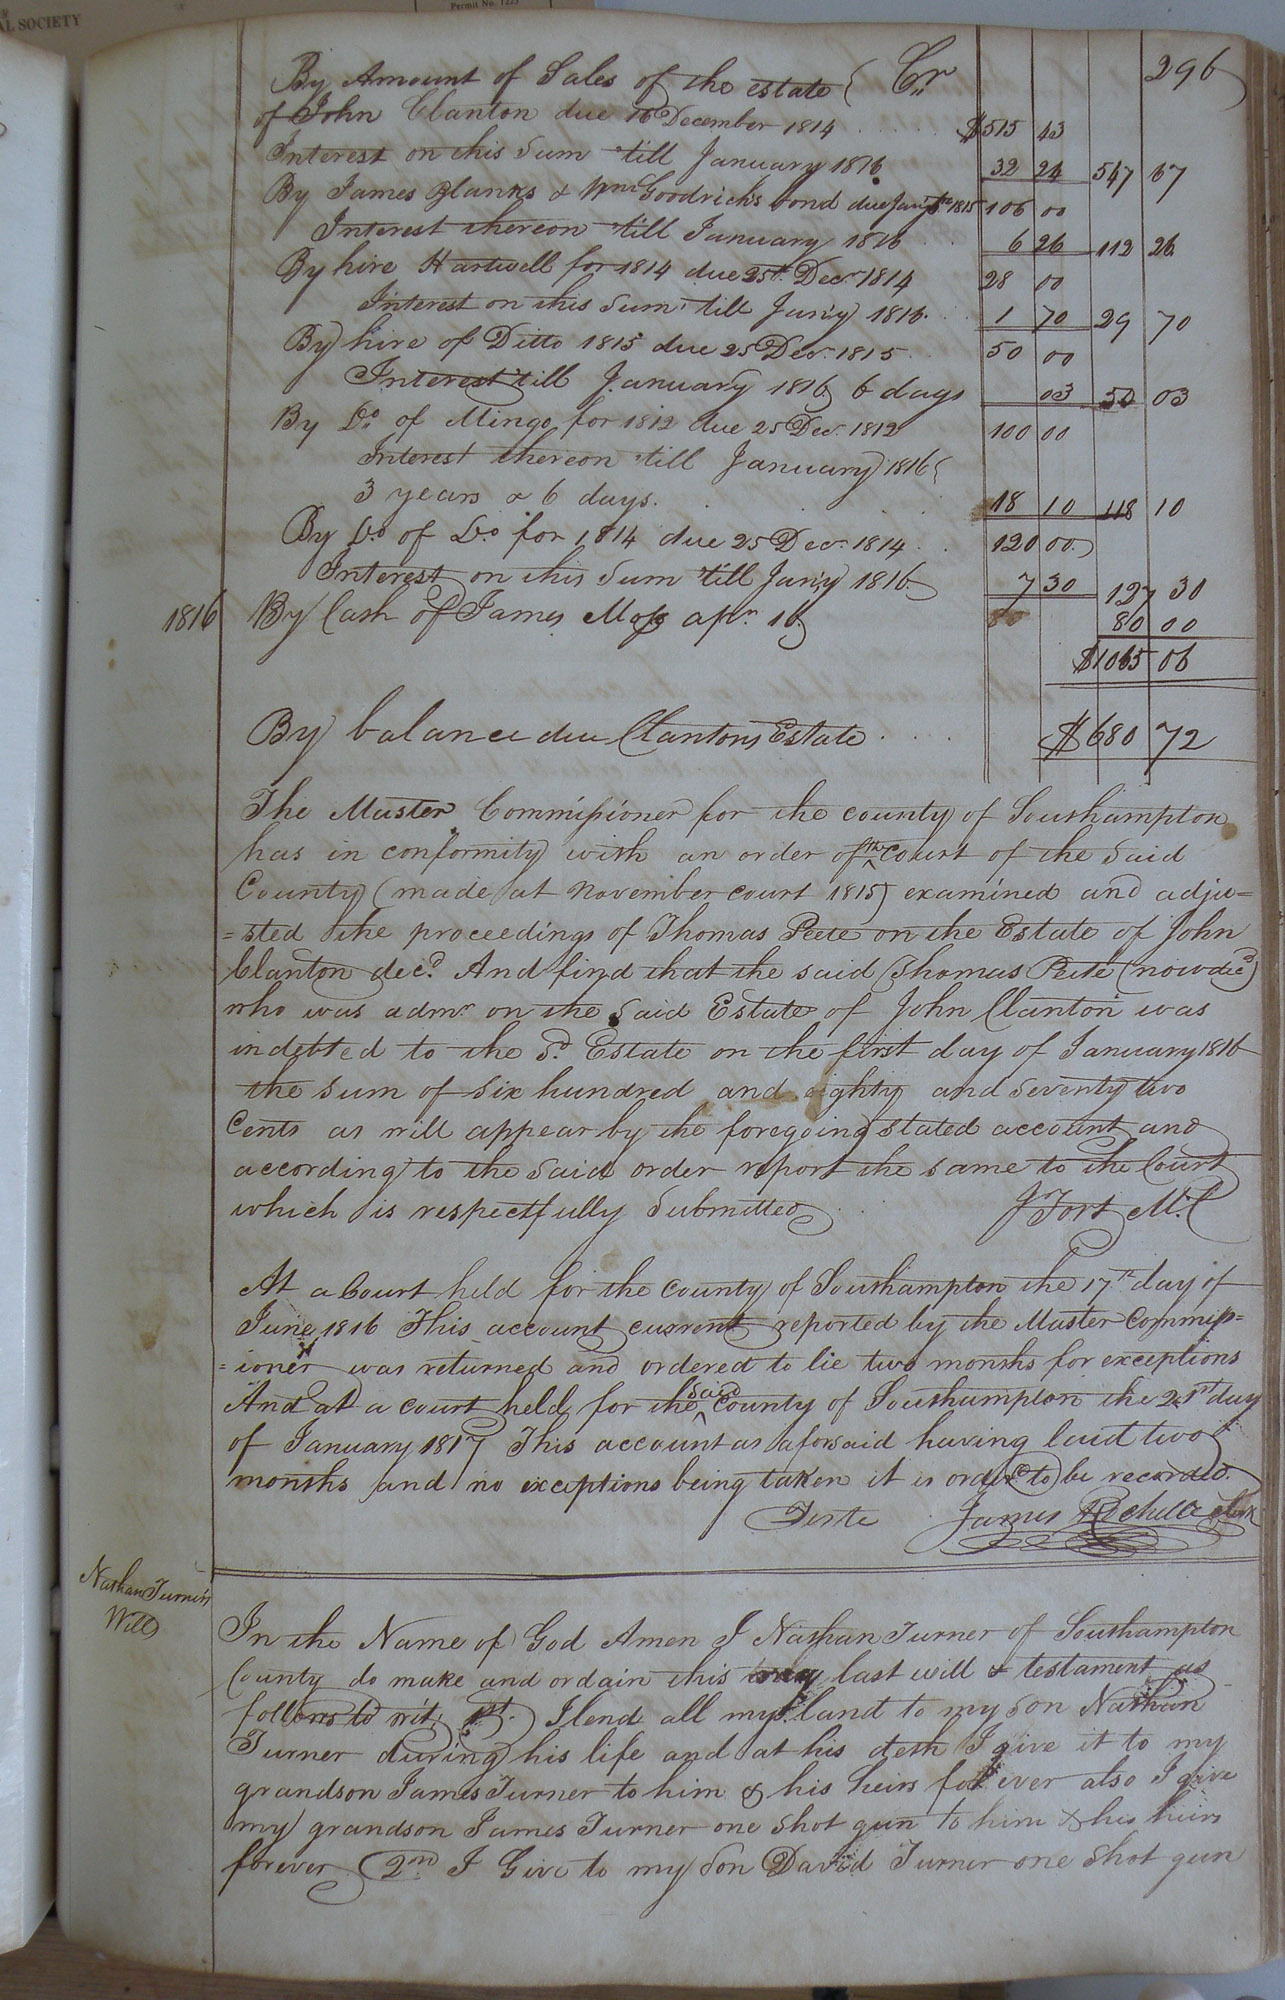 AL SOCIETY
Permit No. 1225
296
By Amount of Sales of the estate { Cr
of John Clanton due 16 December 1814 $515 43
Interest on this Sum till January 1816 32 24 547 67
By James Blanks & Wm Goodrich's bond due Jany 1815 106 00
Interest thereon till January 1816 6 26 112 26
By hire Hartwell for 1814 due 25th Decr 1814 28 00
Interest on this Sum till Jan'y 1816 1 70 29 70
By hire of Ditto 1815 due 25 Decr 1815 50 00
Interest till January 1816 6 days 03 50 03
By Do of Mingo for 1812 due 25 Decr 1812 100 00
Interest thereon till January 1816 {
3 years & 6 days. 18 10 118 10
By Do of Do for 1814 due 25 Decr 1814 120 00
Interest on this Sum till Jan'y 1816 7 30 127 30
1816 By Cash of James Moss apn 16 80 00
$1065 06
By balance due Clantons Estate $680 72
The Master Commissioner for the county of Southampton
has in conformity with an order of the court of the Said
County (made at November court 1815) examined and adju=
=sted the proceedings of Thomas Peete on the Estate of John
Clanton decd. And find that the said Thomas Pete (now decd)
who was admr on the Said Estate of John Clanton was
indebted to the Sd Estate on the first day of January 1816
the sum of six hundred and eighty and seventy two
Cents as will appear by the foregoing stated account and
according to the Said order report the same to the Court
which is respectfully Submitted J Fort M.C
At a Court held for the county of Southampton the 17th day of
June 1816 This account current reported by the Master Commiss=
=ioner was returned and ordered to lie two months for exceptions
And at a court held for the said County of Southampton the 21st day
of January 1817 This account as aforsaid having laid two
months and no exceptions being taken it is order'd to be recorded.
Teste James Rochelle Clerk
Nathan Turner's
Will
In the Name of God Amen I Nathan Turner of Southampton
County do make and ordain this my last will & testament as
follows to wit; 1st. I lend all my land to my son Nathan
Turner during his life and at his deth I give it to my
grandson James Turner to him & his heirs for ever also I give
my grandson James Turner one shot gun to him & his heirs
forever 2nd I Give to my Son David Turner one Shot gun